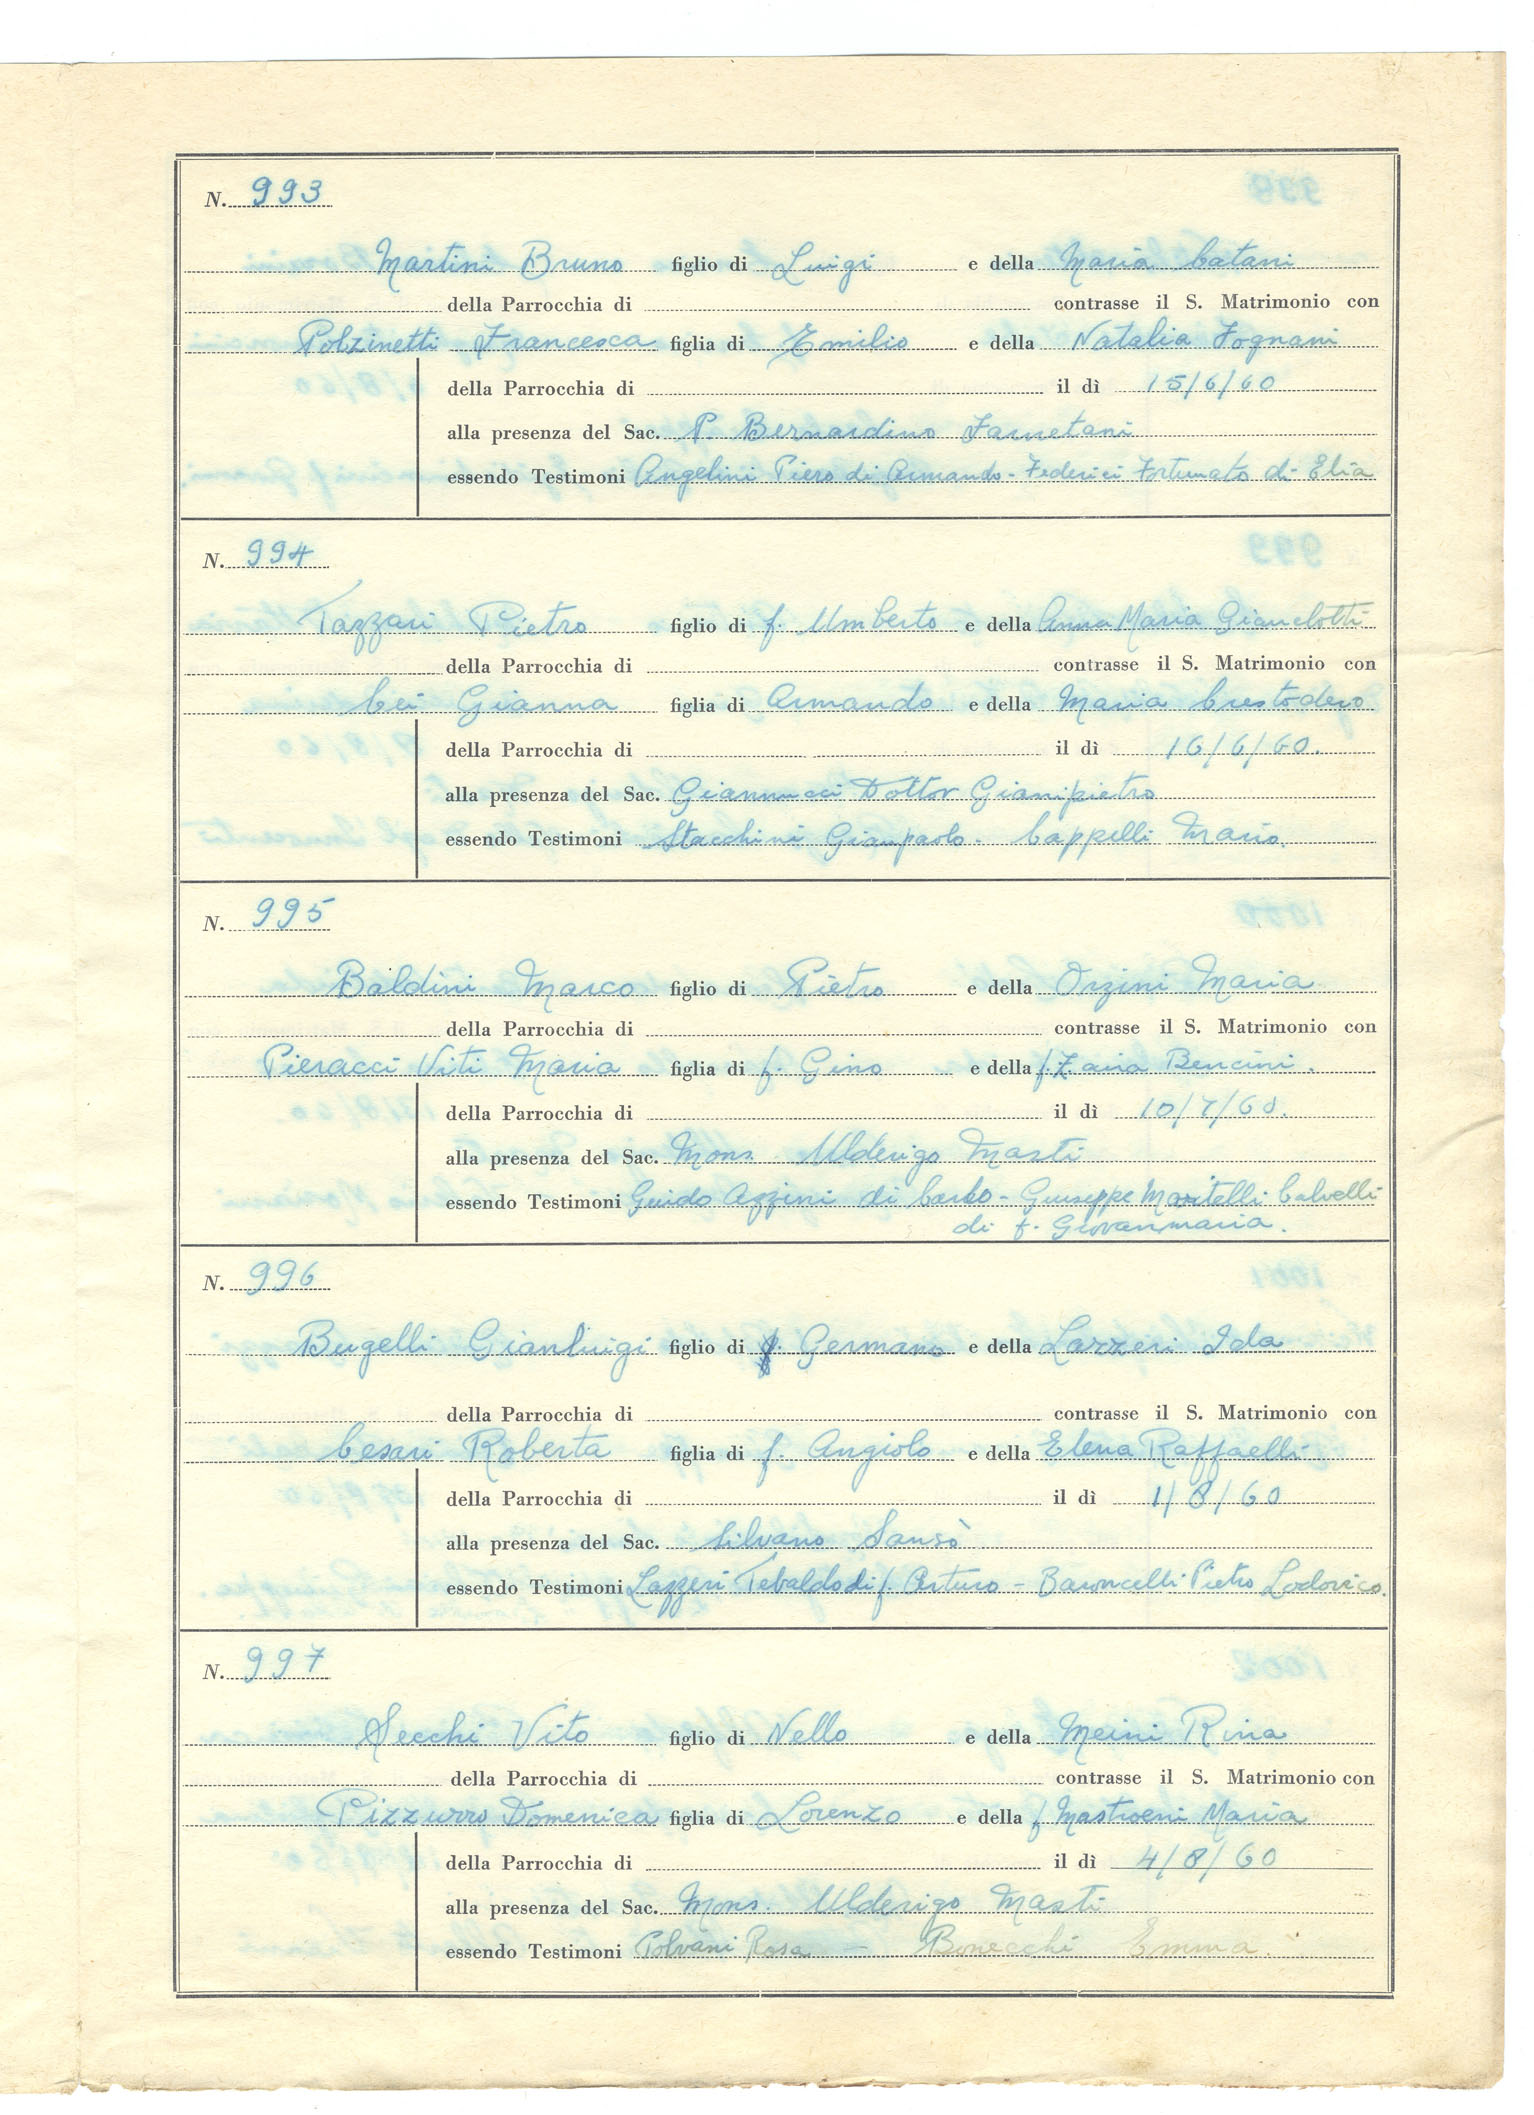 N. 993
Martini Bruno figlio di Luigi e della Maria Catani
della Parrocchia di contrasse il S. Matrimonio con
Polzinetti Francesca figlia di Emilio e della Natalia Fognani
della Parrocchia di il dì 15/6/60
alla presenza del Sac. P. Bernardino Farnetani
essendo Testimoni Angelini Piero di Armando - Federici Fortunato di Elia
N. 994
Tazzari Pietro figlio di f. Umberto e della Anna Maria
della Parrocchia di contrasse il S. Matrimonio con
Cei Gianna figlia di Armando e della Maria
della Parrocchia di il dì 16/6/60.
alla presenza del Sac. Giannucci Dottor Gianpietro
essendo Testimoni Stacchini Gianpaolo - Cappelli Mario.
N. 995
Baldini Marco figlio di Pietro e della Orzini Maria
della Parrocchia di contrasse il S. Matrimonio con
Pieracci Viti Maria figlia di f. Gino e della f. Zaira Bencini.
della Parrocchia di il dì 10/7/60.
alla presenza del Sac. Mons. Ulderigo Masti
essendo Testimoni Guido Azzini di Carlo - Giuseppe Martelli Calvelli
di f. Giovanmaria.
N. 996
Bugelli Gianluigi figlio di Germano e della Lazzeri Ida
della Parrocchia di contrasse il S. Matrimonio con
Cesari Roberta figlia di f. Angiolo e della Elena Raffaelli
della Parrocchia di il dì 1/8/60
alla presenza del Sac. Silvano Sansò
essendo Testimoni Lazzeri Tebaldo di f. Arturo - Baroncelli Pietro Lodovico.
N. 997
Secchi Vito figlio di Nello e della Meini Rina
della Parrocchia di contrasse il S. Matrimonio con
Pizzurro Domenica figlia di Lorenzo e della f Mastroeni Maria
della Parrocchia di il dì 4/8/60
alla presenza del Sac. Mons. Ulderigo Masti
essendo Testimoni Polvani Rosa - Bonecchi Emma.